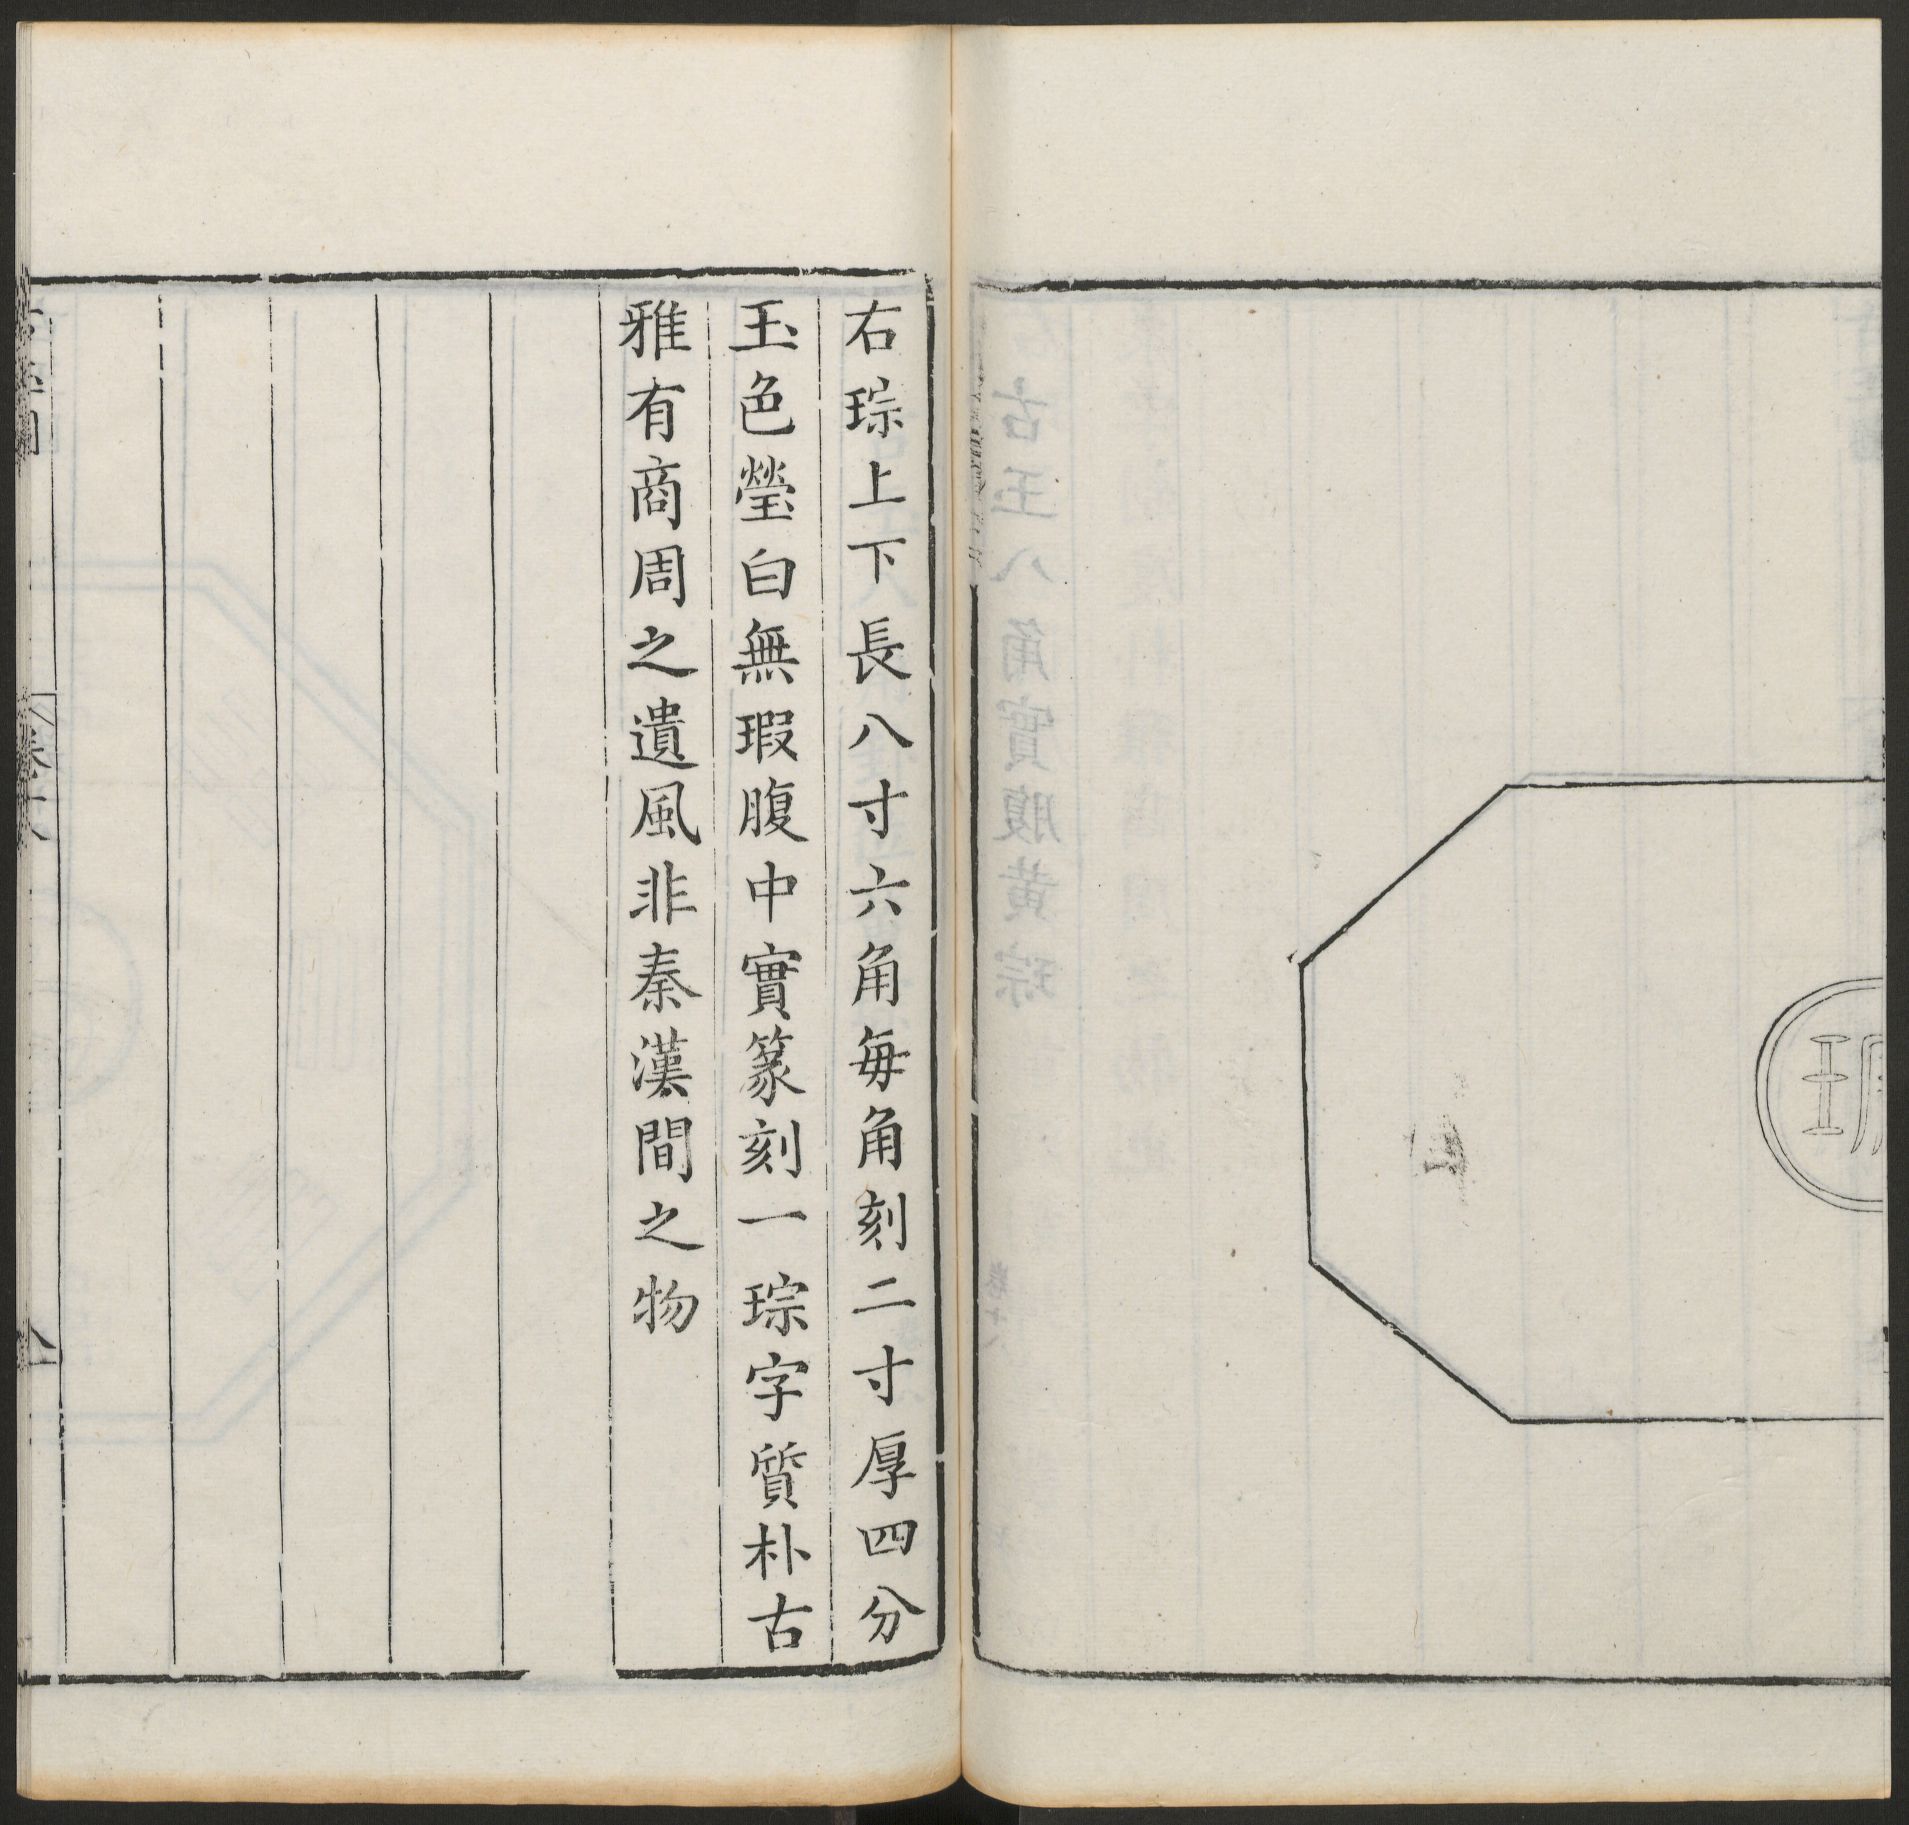 右琮上下長八寸六角每角刻二寸厚四分
玉色瑩白無瑕腹中實篆刻一琮字質朴古
雅有商周之遺風非秦漢間之物